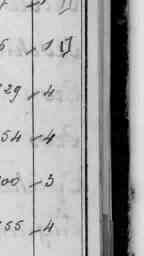 5 1
29 4
54 4
00 3
55 4